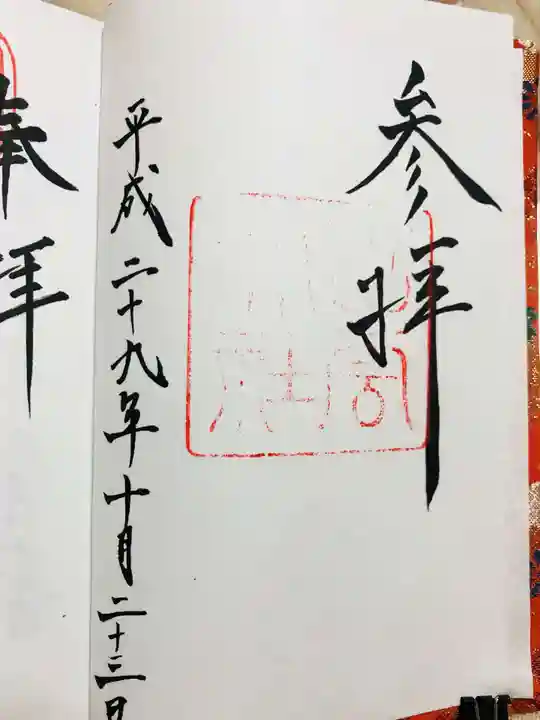 参拝
平成二十九年十月二十三日
奉拝